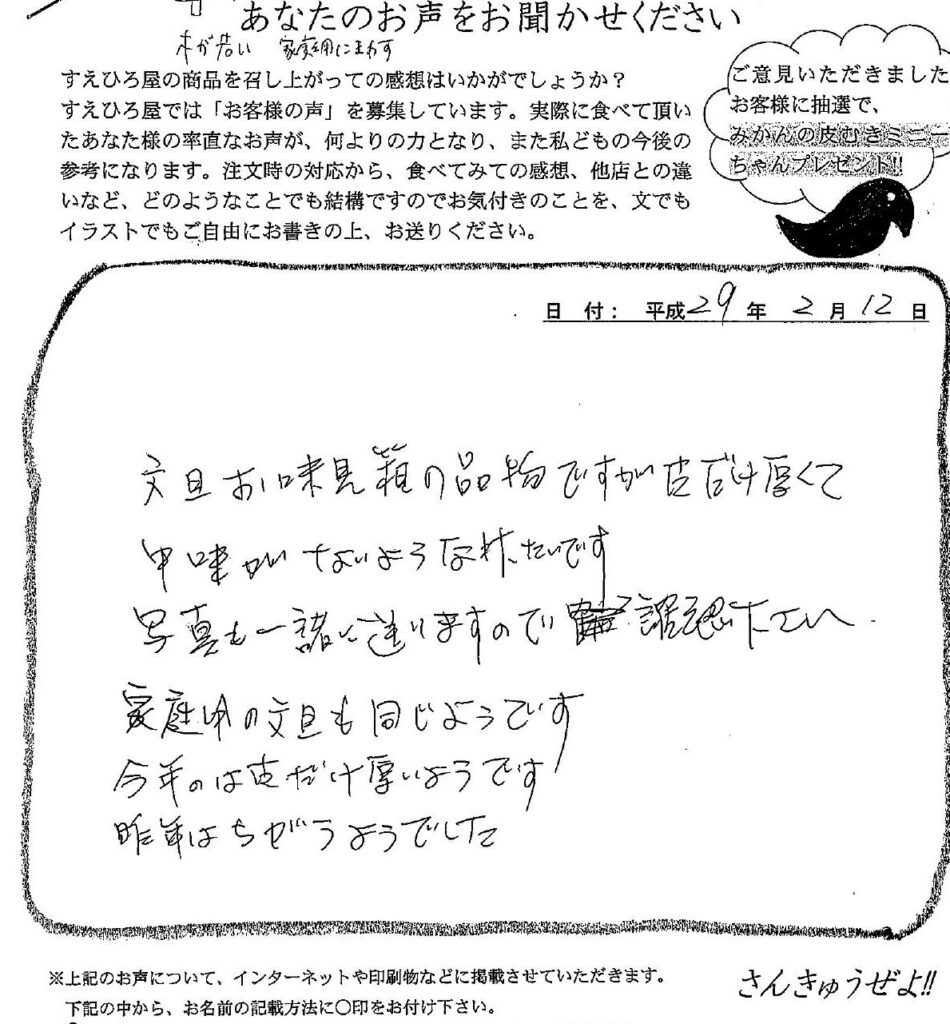 あなたのお声をお聞かせください
木が若い 家庭用にまわす
すえひろ屋の商品を召し上がっての感想はいかがでしょうか？
すえひろ屋では「お客様の声」を募集しています。実際に食べて頂い
たあなた様の率直なお声が、何よりの力となり、また私どもの今後の
参考になります。注文時の対応から、食べてみての感想、他店との違
いなど、どのようなことでも結構ですのでお気付きのことを、文でも
イラストでもご自由にお書きの上、お送りください。
ご意見いただきました
お客様に抽選で、
みかんの皮むきミニー
ちゃんプレゼント!!
日 付： 平成29年 2月12日
文旦お味見箱の品物ですが皮だけ厚くて
中味がないようなかんじです
写真も一緒に送りますので 確認下さい
家庭用の文旦も同じようです
今年のは皮だけ厚いようです
昨年はちがうようでした
※上記のお声について、インターネットや印刷物などに掲載させていただきます。
下記の中から、お名前の記載方法に〇印をお付け下さい。
さんきゅうぜよ!!